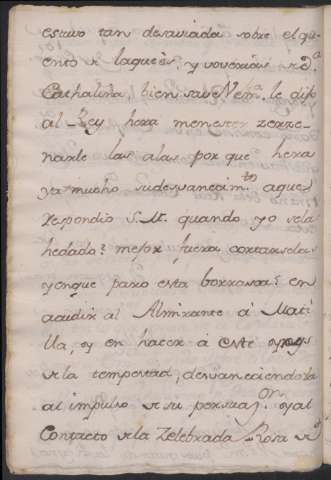 estuvo tan desauiada sobre el qu
ento
Cathalina, bien save Nem.ª le dijo
al Rey hera menester zerze-
narle las alas por que hera
ya mucho sudesvanecim.to aque
Respondio S.M. quando yo sela
hedado? mejor fuera cortarselas
yenque paro esta borrasca? en
acudir al Almirante â Mati
lla, y en hacer â este
la tempestad, desvaneciendola
al impulso su persuaz.on y al
Contacto la Zelebrada Rosa